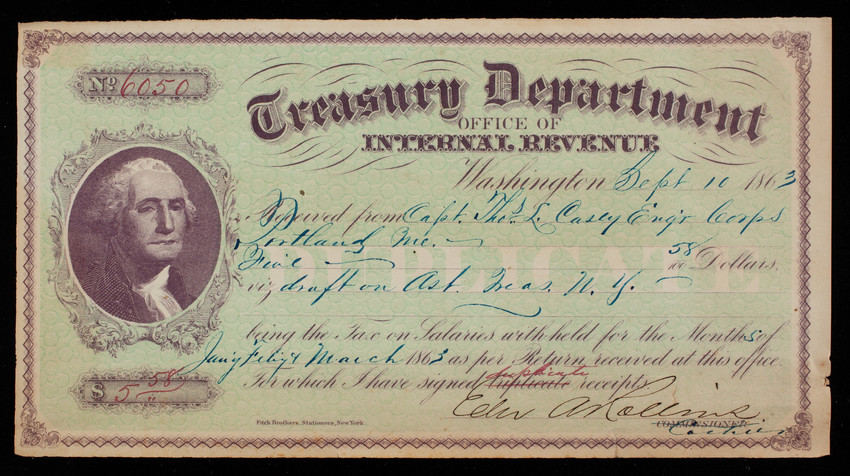 No 6050
Treasury Department
OFFICE OF
INTERNAL REVENUE
Washington Sept 10 1863
Received from Capt. Thos. L. Casey Engr Corps
Portland Me.
Five 58/100 Dollars.
DUPLICATE
viz, draft on Ast. Treas. N. Y.
being the Tax on Salaries withheld for the Months of
Jany Feby & March 1863 as per Return received at this office.
duplicate
For which I have signed triplicate receipts
$ 5 58
Edw A Rollins
COMMISSIONER
Cashier
Fitch Brothers, Stationers, New York.